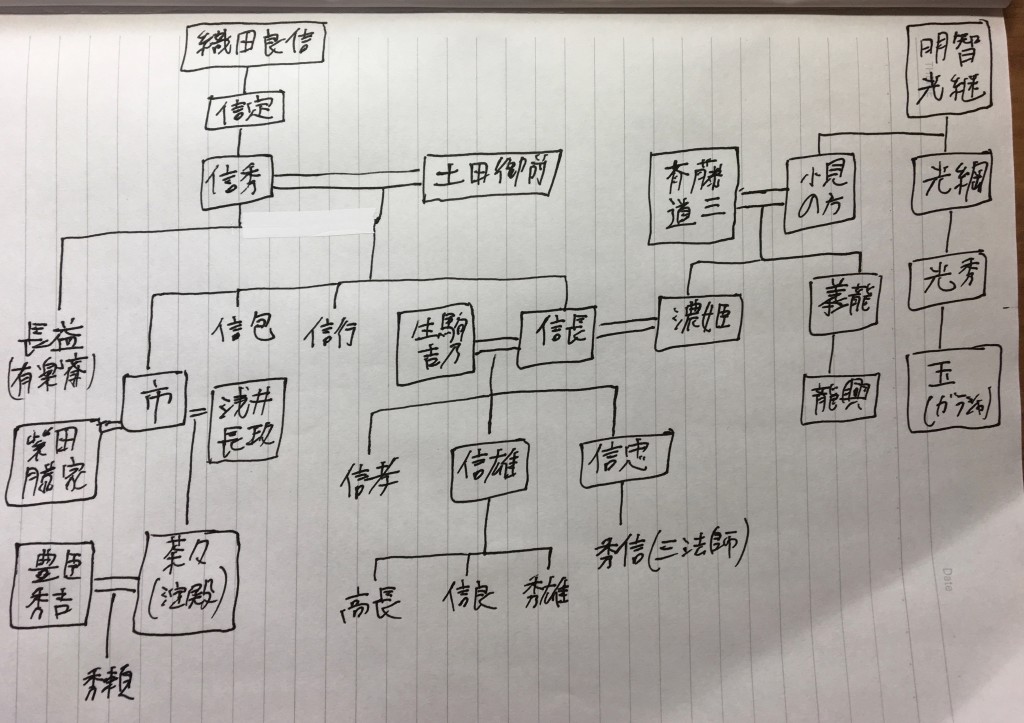 織田良信
信定
信秀
土田御前
明智
光継
斉藤
道三
小見
の方
光綱
光秀
玉
(ガラシャ)
長益
(有楽斎)
信包
信行
生駒
吉乃
信長
濃姫
義龍
龍興
市
浅井
長政
柴田
勝家
信孝
信雄
信忠
秀信(三法師)
豊臣
秀吉
茶々
(淀殿)
高長
信良
秀雄
秀頼
Date